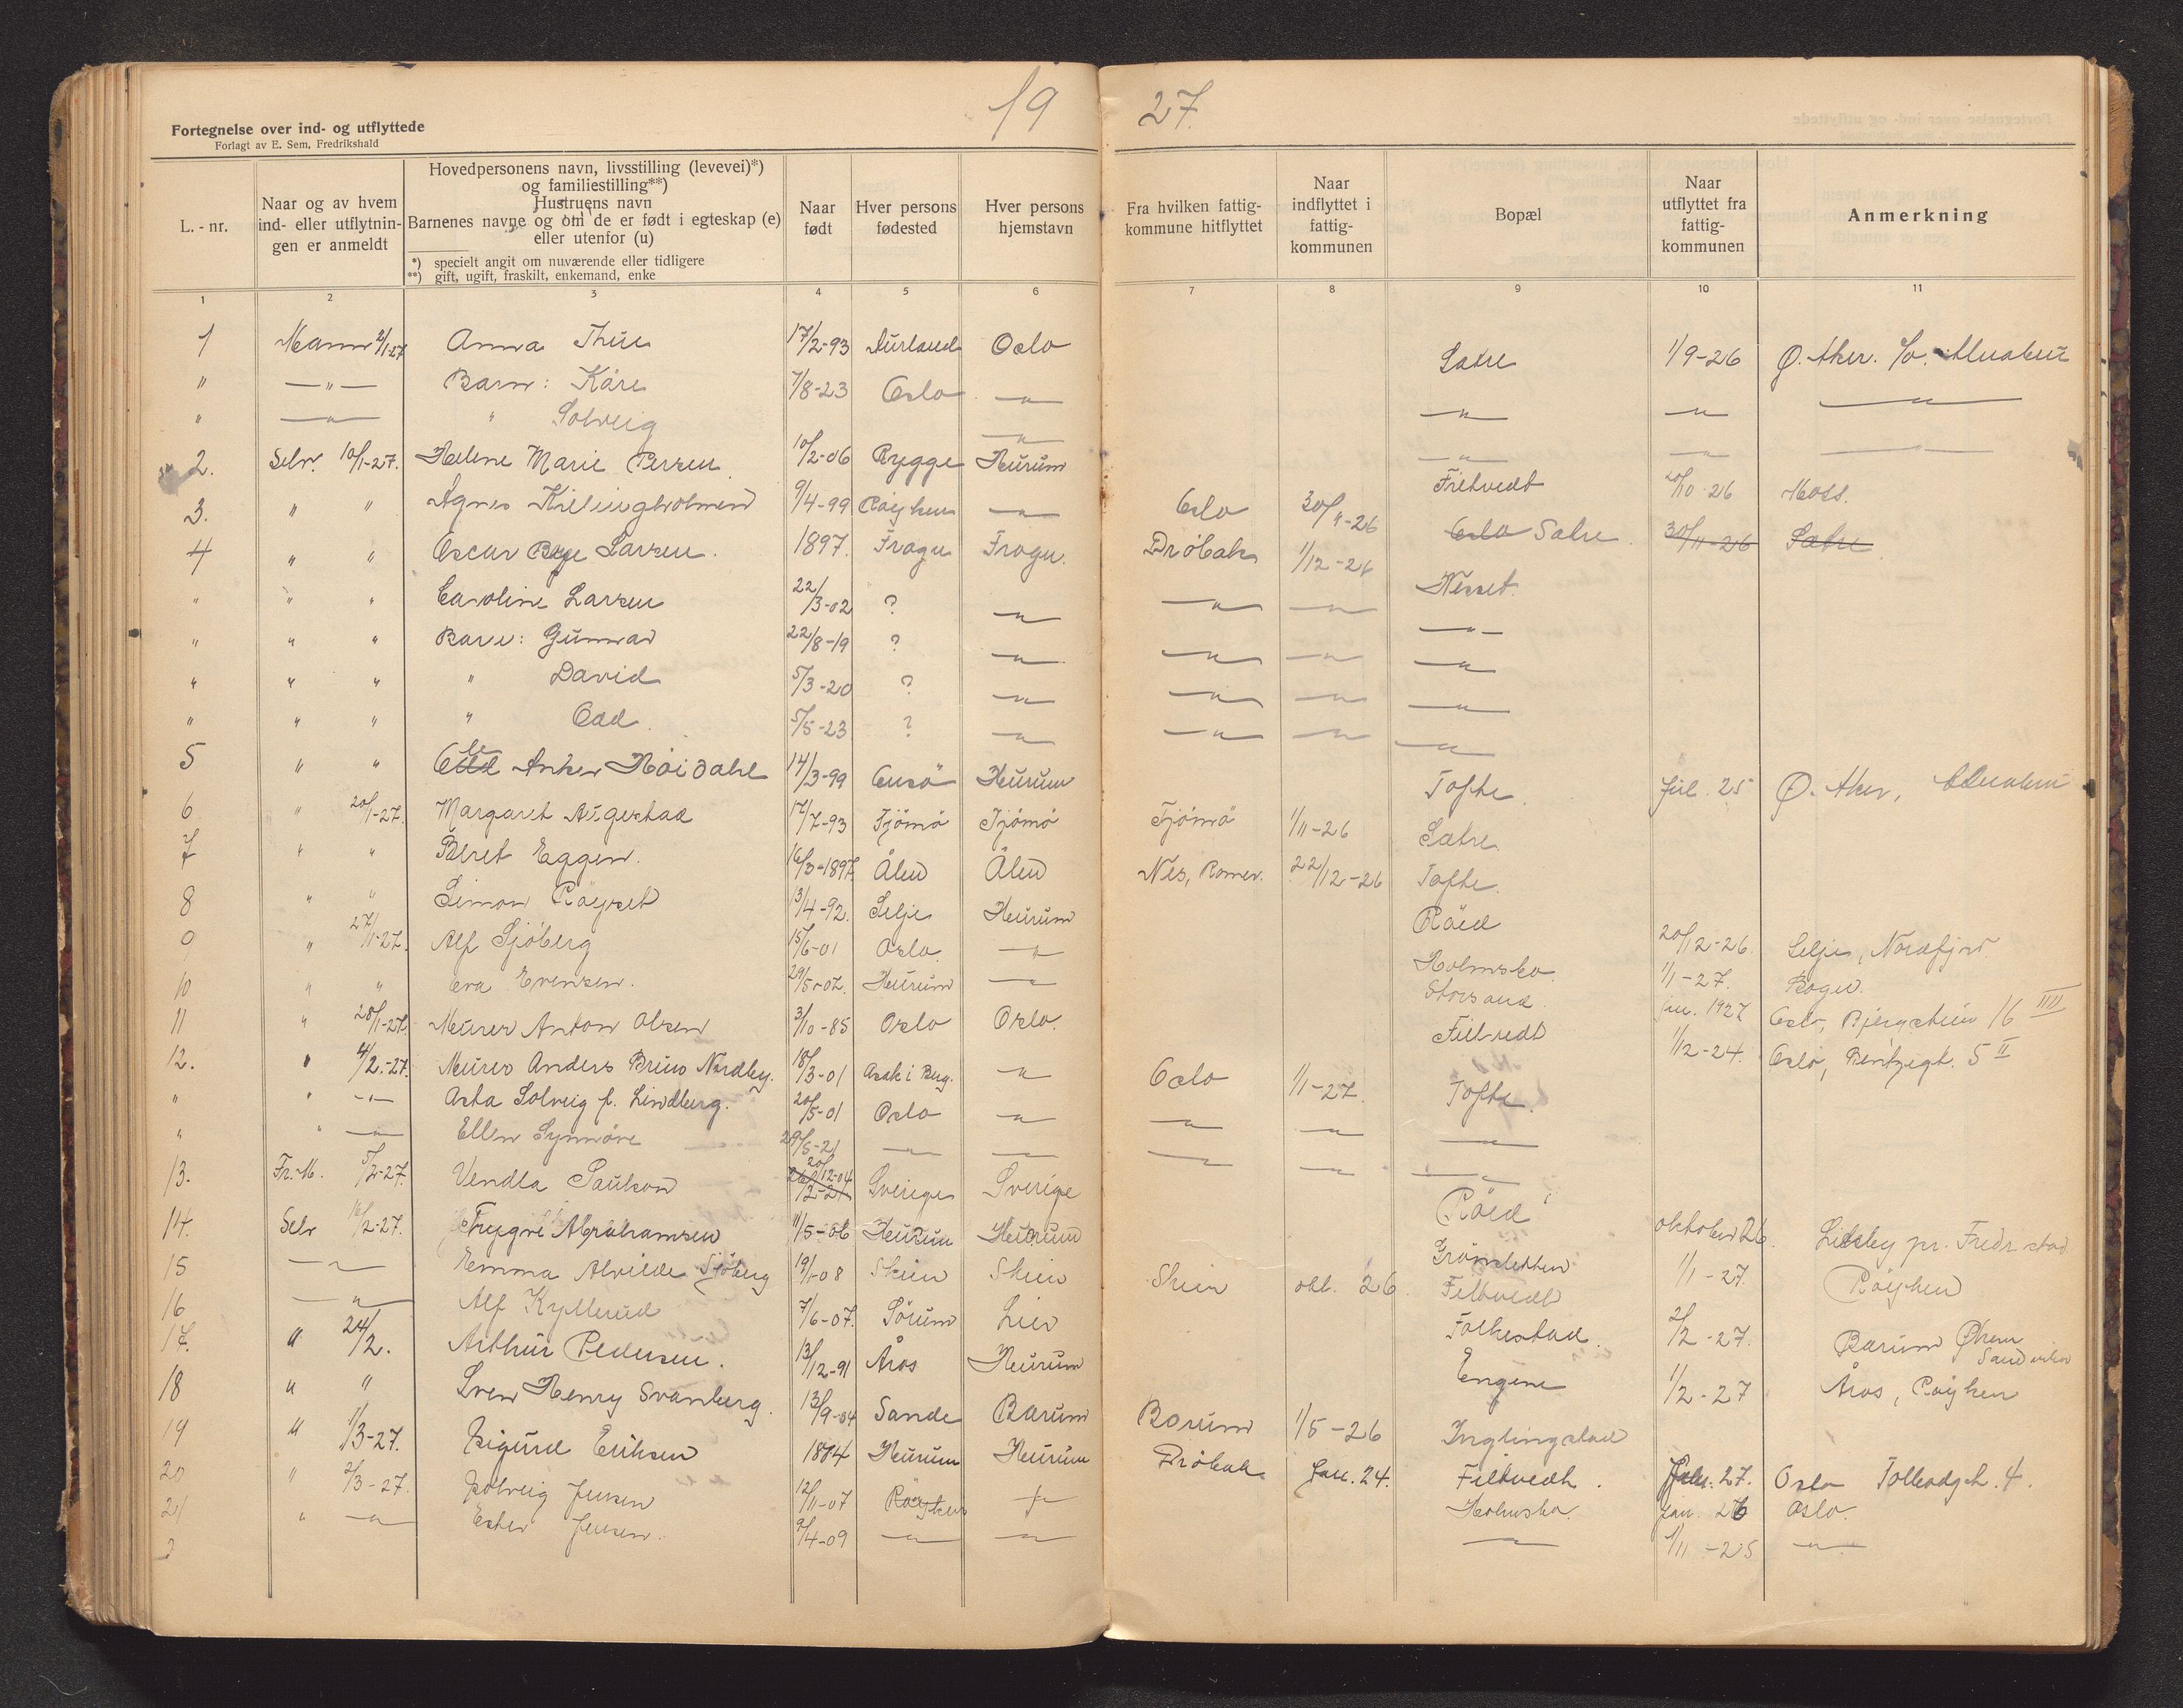 19 27.
Fortegnelse over ind- og utflyttede
Forlagt av E. Sem, Fredrikshald
L. - nr.
Naar og av hvem ind- eller utflytnin- gen er anmeldt
Hovedpersonens navn, livsstilling (levevei)*)
og familiestilling**)
Hustruens navn
Barnenes navne og om de er født i egteskap (e)
eller utenfor (u)
*) specielt angit om nuværende eller tidligere
**) gift, ugift, fraskilt, enkemand, enke
Naar født
Hver persons fødested
Hver persons hjemstavn
Fra hvilken fattig- kommune hitflyttet
Naar indflyttet i fattig- kommunen
Bopæl
Naar utflyttet fra fattig- kommunen
Anmerkning
1 2 3 4 5 6 7 8 9 10 11
1 Mann 2/1-27 Anna Thue 17/2-93 Aurland Oslo Sætre 1/9-26 Ø. Aker.
" —"— Barn: Kåre 7/8-23 Oslo —"— —"— —"— —"—
" —"— " Solveig —"— —"— —"— —"—
2. Selv. 10/1-27. Helene Marie Persen 10/2-06 Rygge Hurum Filtvedt 20/10-26 Moss.
3. " " Agnes Killingholmen 9/4-99 Røyken —"— Oslo 30/11-26 Oslo Sætre 30/11-26 Sætre
4 " " Oscar Larsen. 1897. Frogn Frogn. Drøbak 1/12-26 Nesset.
" " " Caroline Larsen 22/3-02 ? —"— —"— —"— —"—
" " " Barn: Gunvar 22/8-19 ? —"— —"— —"— —"—
" " " " David 5/3-20 ? —"— —"— —"— —"—
" " " " Odd. 5/5-23 ? —"— —"— —"— —"—
5 " " Anker Høidahl 14/3-99 Onsö Hurum Tofte. jul. 25 Ø. Aker,
6 " 20/1-27. Margaret Augestad 17/7-93 Tjömö Tjömö Tjömö 1/11-26 Sætre.
7 " " Beret Eggen. 16/3-1897. Ålen Ålen Nes, Romer. 22/12-26 Tofte.
8 " " Simon Røyset 13/4-92. Selje Hurum Röed 20/12-26. Selje, Nordfjord
9 " 27/1-27. Alf Sjöberg 15/6-01 Oslo. —"— Holmsbo 1/1-27. Bogen.
10 " " Eva Evensen. 29/5-02. Hurum —"— Storsand. jan. 1927 Oslo, Bjergstien 16 IIII
11 " 28/1-27. Murer Anton Olsen 3/10-85 Oslo Oslo. Filtvedt 1/12-24. Oslo, Bentzegt. 5 II
12. " 4/2.-27. Murer Anders Bruno Nordby. 18/3-01 Asak i Berg. —"— Oslo 1/1-27. Tofte.
" " —"— Asta Solveig f. Lindberg. 20/5-01 Oslo —"— —"— —"— —"—
" " —"— Ellen Synnöve 29/5-21 —"— —"— —"— —"— —"—
13. Fr. M. 5/2-27. Vendla Paulson 20/12-04 Sverige Sverige Röed oktober 26. Lisleby pr. Fredr.stad
14. Selv 16/2-27. Trygve Abrahamsen 11/5-06 Hurum Hurum Grönsletten 1/1-27. Røyken
15 —"— Emma Alvilde Sjöberg 19/1-08 Skien Skien Skien okt. 26. Filtvedt
16 —"— Alf Kyllerud 7/6-07. Sörum Lier Folkestad. 2/2-27. Bærum
17. " 24/2. Arthur Pedersen. 13/12-91 Åros Hurum Engene 1/2-27 Åros, Røyken
18 " " Sven Henry Svanberg. 13/9-04 Sande Bærum Bærum 1/5-26 Ynglingstad
19 " 1/3-27. Sigurd Eriksen 1884 Hurum Hurum Drøbak Jan. 24. Filtvedt. Jan. 27. Oslo Tollbodgt. 4.
20 " 2/3-27. Solveig Jensen 12/11-07 Røyken —"— Holmsbo. jan. 26 Oslo.
21 " —"— Ester Jensen. 9/4-09 —"— —"— —"— 1/11-25 —"—